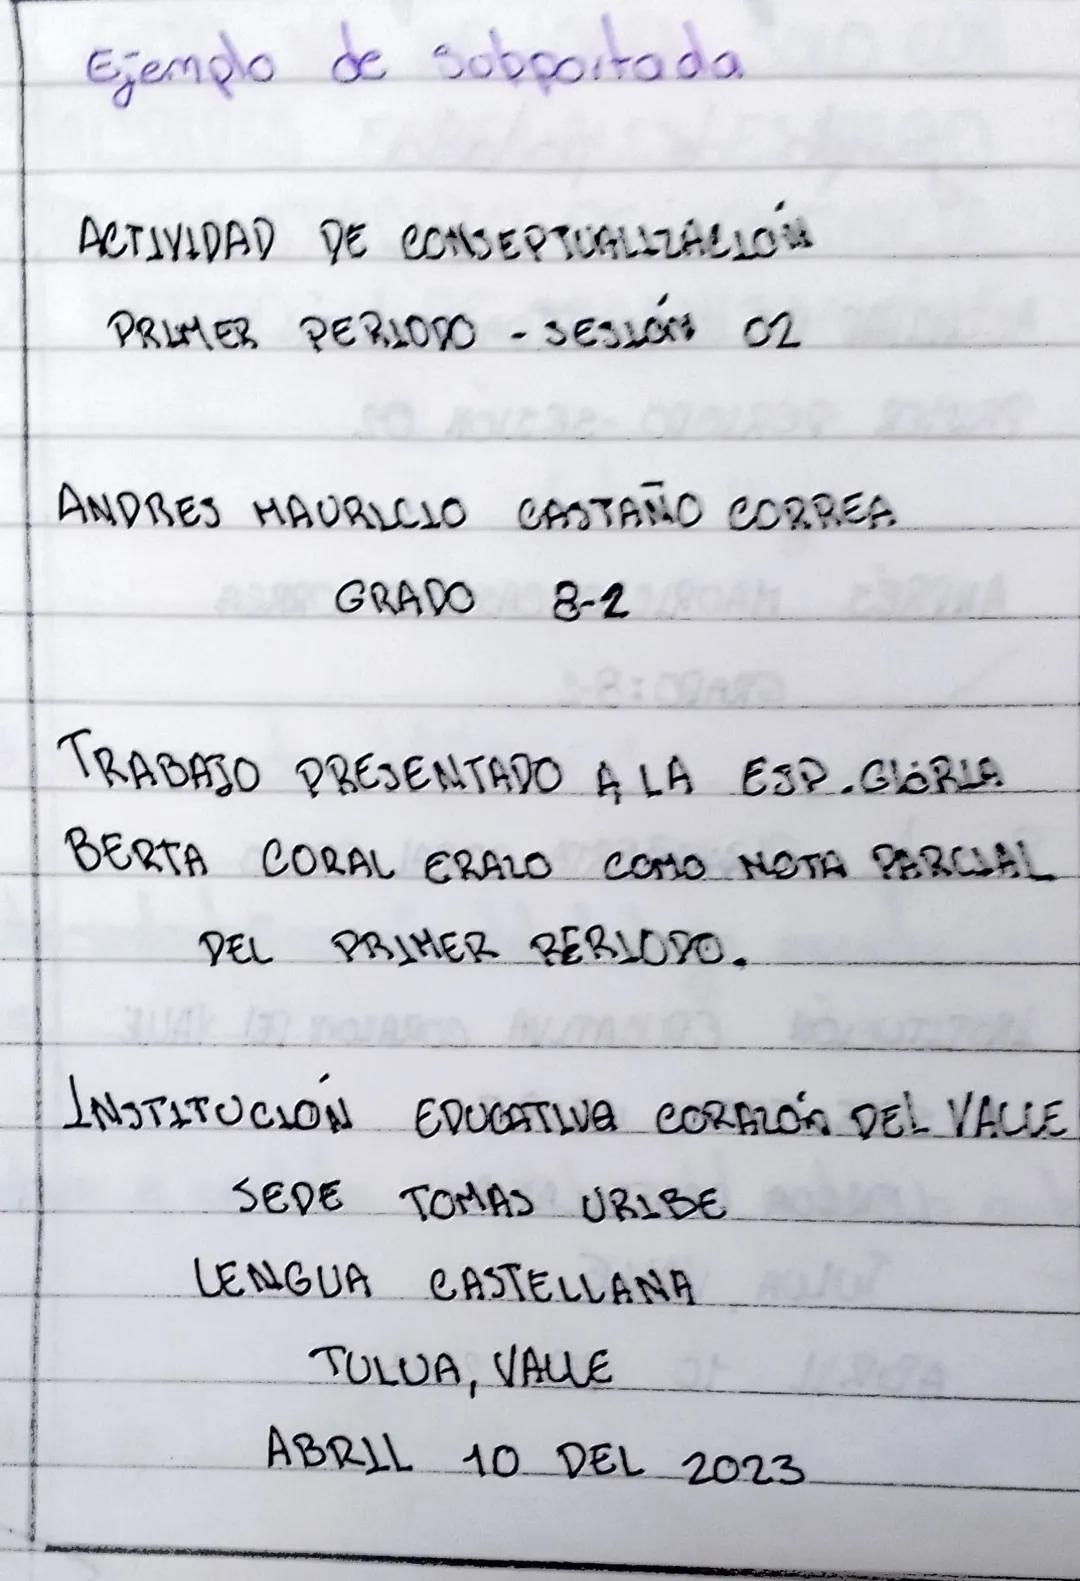 Ejemplo de Subportada
ACTIVIDAD DE CONSEPTUALIZACIÓN
PRIMER PERIODO - SESIÓN 02
ANDRES MAURICIO CASTAÑO CORREA
GRADO 8-2
TRABAJO PRESENTADO A LA ESP. GLORIA
BERTA CORAL ERAZO COMO NOTA PARCIAL
DEL PRIMER PERIODO.
INSTITUCIÓN EDUCATIVA CORAZÓN DEL VALLE
SEDE TOMAS URIBE
LENGUA CASTELLANA
TULUA, VALLE
ABRIL 10 DEL 2023